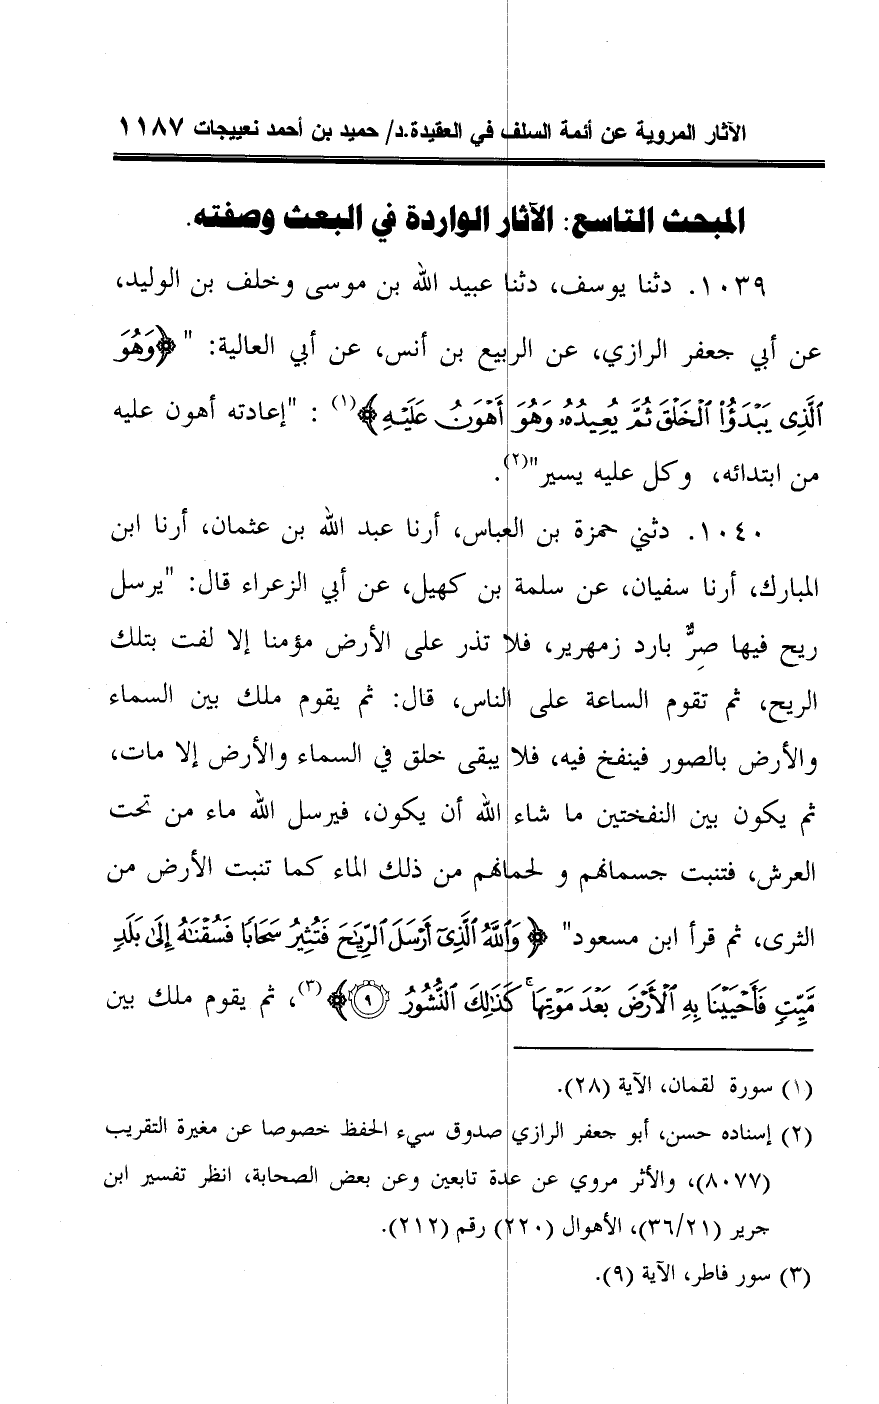 الآثار المروية عن أئمة السلف في العقيدة.د/ حميد بن أحمد نعييجات ١١٨٧
المبحث التاسع: الآثار الواردة في البعث وصفته.
١٠٣٩. دثنا يوسف، دثنا عبيد الله بن موسى وخلف بن الوليد،
عن أبي جعفر الرازي، عن الربيع بن أنس، عن أبي العالية: "﴿وَهُوَ
ٱلَّذِى يَبْدَؤُا۟ ٱلْخَلْقَ ثُمَّ يُعِيدُهُۥ وَهُوَ أَهْوَنُ عَلَيْهِ﴾(١) : "إعادته أهون عليه
من ابتدائه، وكل عليه يسير"(٢).
١٠٤٠. دثني حمزة بن العباس، أرنا عبد الله بن عثمان، أرنا ابن
المبارك، أرنا سفيان، عن سلمة بن كهيل، عن أبي الزعراء قال: "يرسل
ريح فيها صِرٌّ بارد زمهرير، فلا تذر على الأرض مؤمنا إلا لفت بتلك
الريح، ثم تقوم الساعة على الناس، قال: ثم يقوم ملك بين السماء
والأرض بالصور فينفخ فيه، فلا يبقى خلق في السماء والأرض إلا مات،
ثم يكون بين النفختين ما شاء الله أن يكون، فيرسل الله ماء من تحت
العرش، فتنبت جسمانهم و لحمانهم من ذلك الماء كما تنبت الأرض من
الثرى، ثم قرأ ابن مسعود" ﴿وَٱللَّهُ ٱلَّذِىٓ أَرْسَلَ ٱلرِّيَٰحَ فَتُثِيرُ سَحَابًا فَسُقْنَٰهُ إِلَىٰ بَلَدٍ
مَّيِّتٍ فَأَحْيَيْنَا بِهِ ٱلْأَرْضَ بَعْدَ مَوْتِهَا ۚ كَذَٰلِكَ ٱلنُّشُورُ ٩﴾(٣)، ثم يقوم ملك بين
(١) سورة لقمان، الآية (٢٨).
(٢) إسناده حسن، أبو جعفر الرازي صدوق سيء الحفظ خصوصا عن مغيرة التقريب
(٨٠٧٧)، والأثر مروي عن عدة تابعين وعن بعض الصحابة، انظر تفسير ابن
جرير (٣٦/٢١)، الأهوال (٢٢٠) رقم (٢١٢).
(٣) سور فاطر، الآية (٩).